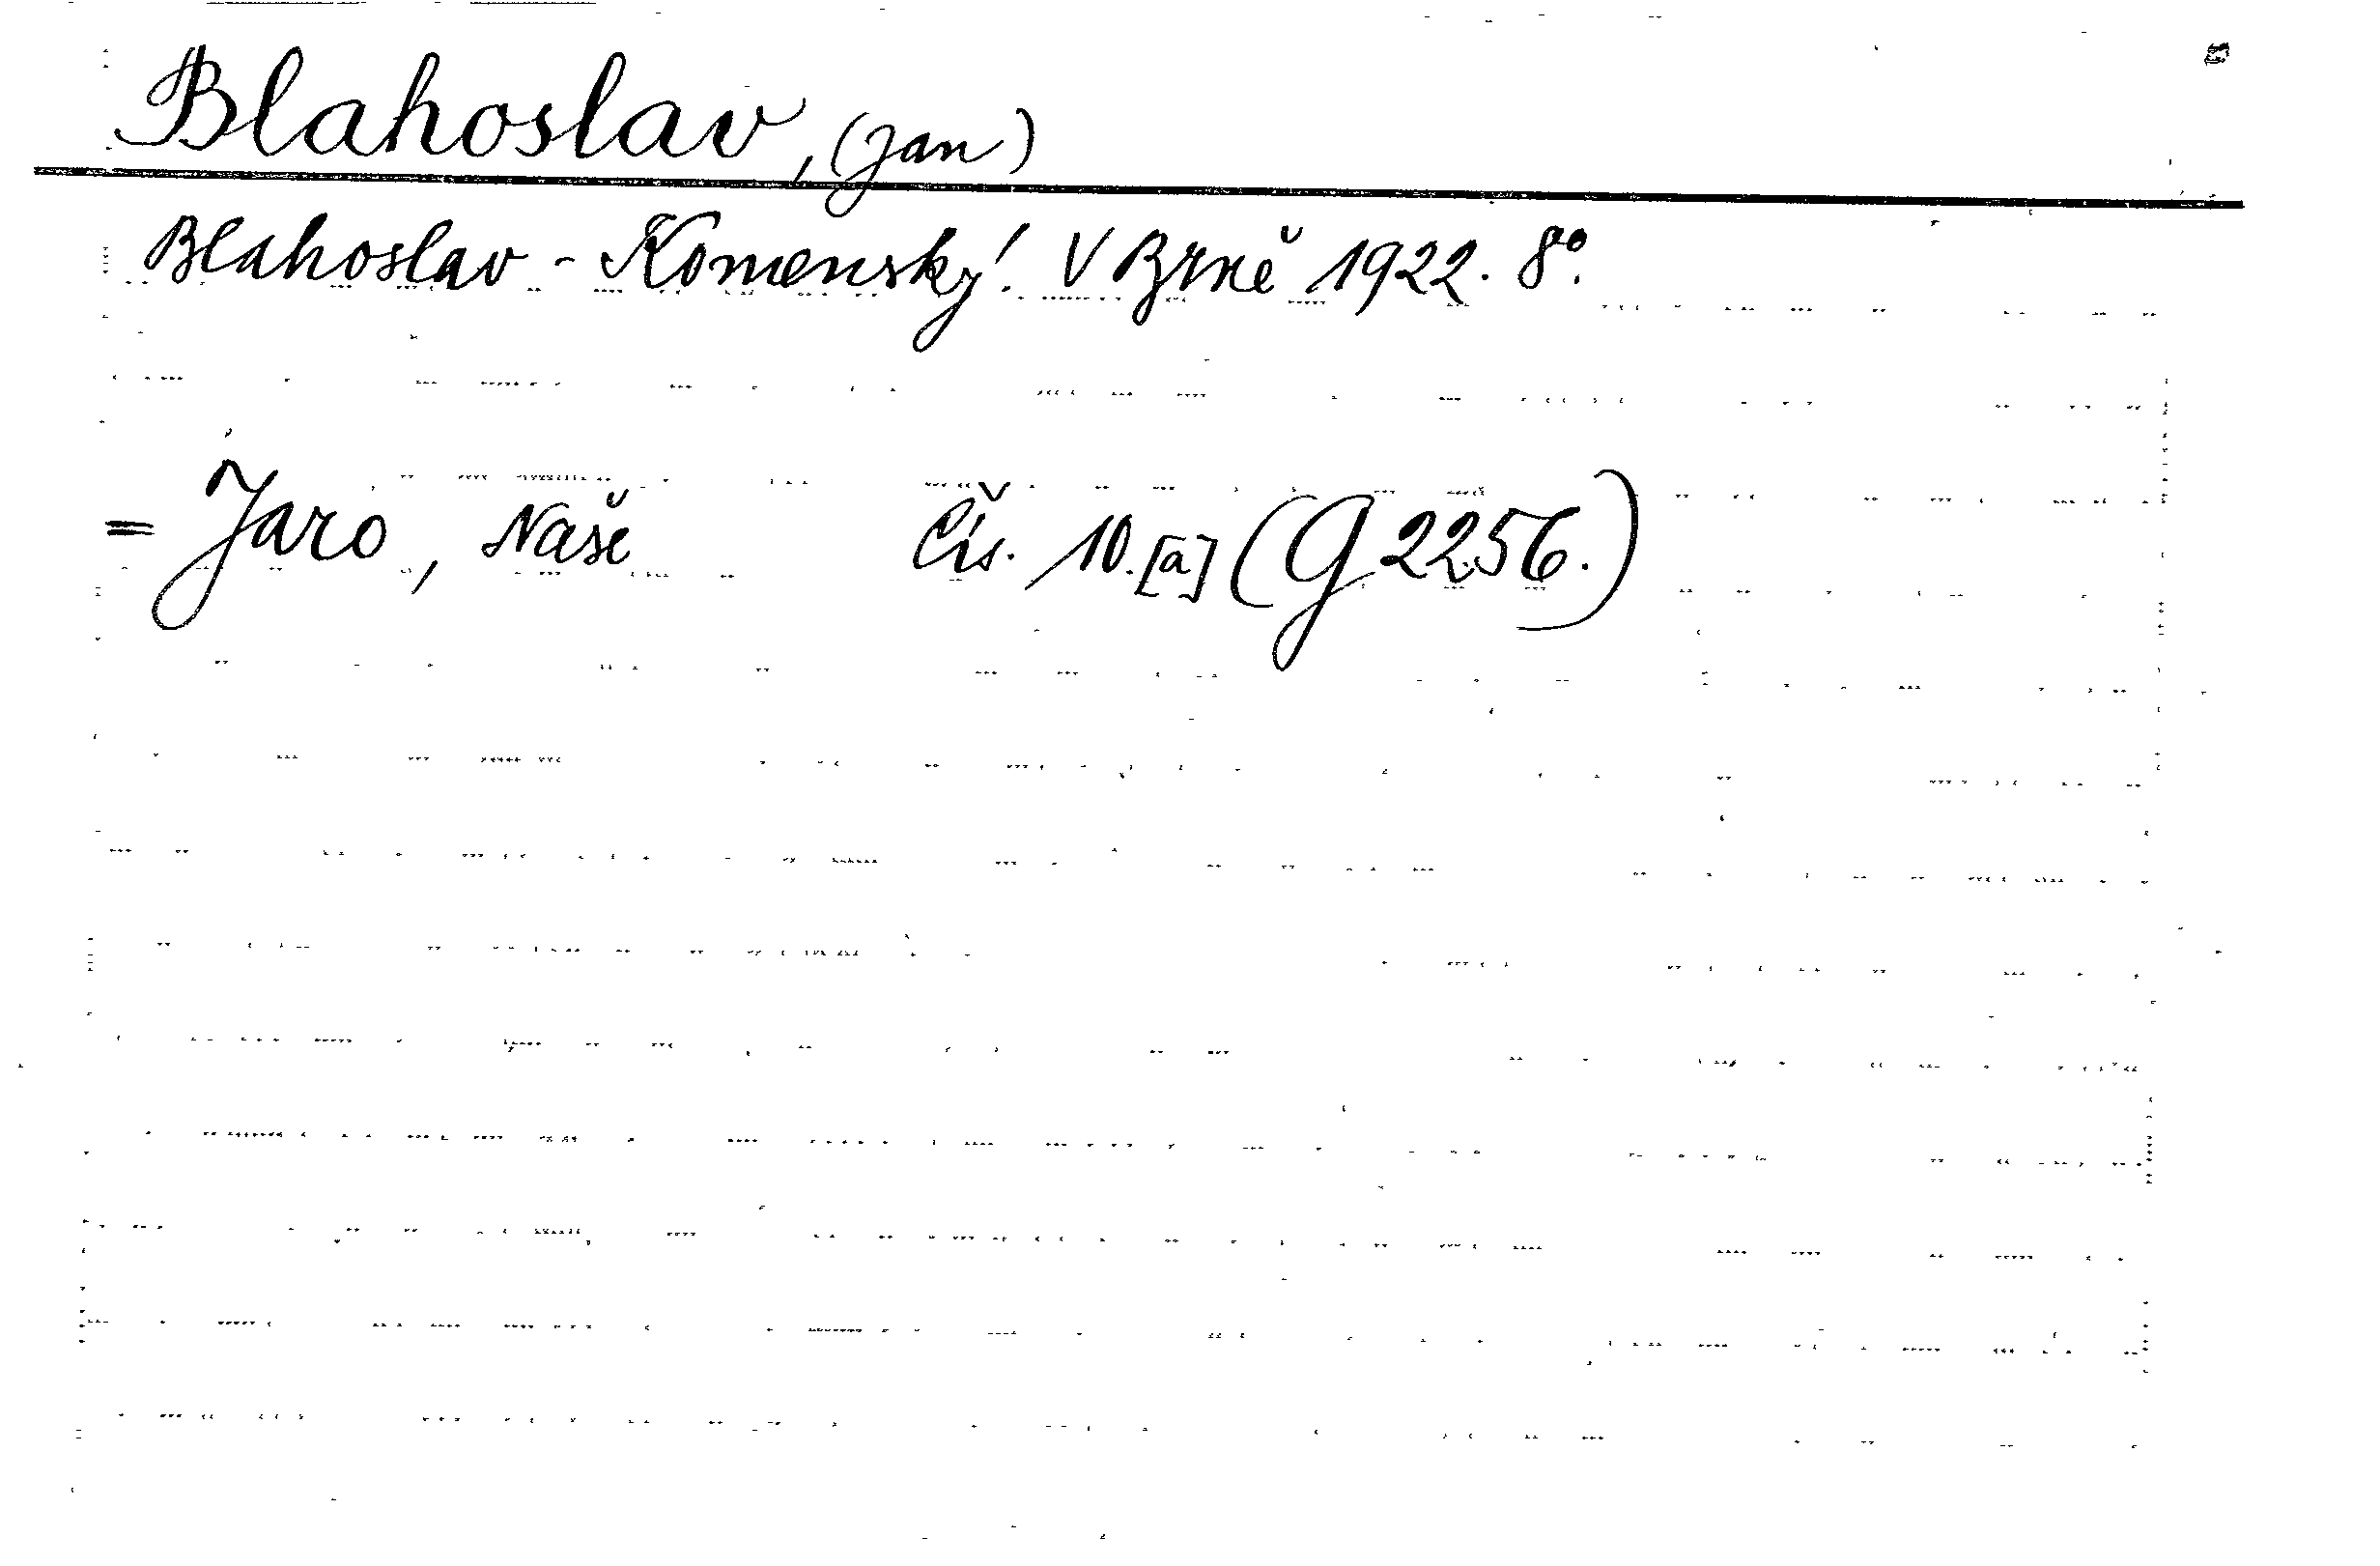 Blahoslav, (Jan)
Blahoslav - Komenský. V Brně 1922. 8°.
= Jaro, Naše Čís. 10.[a] (G 2256.)